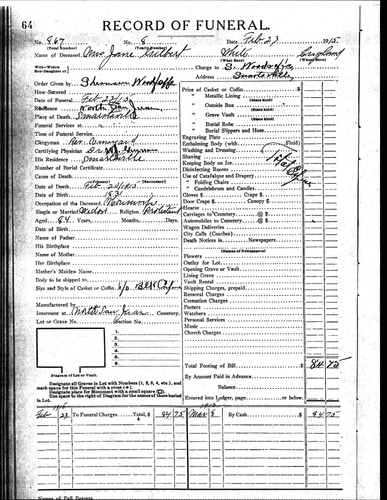 64
RECORD OF FUNERAL.
No. 867 No. 8 Date, Feb 23 1915
(Total Number) (Yearly Number)
Name of Deceased, Mrs Jane Gilbert White England
(What Race) (Where Born)
Wife—Widow
Son-Daughter of
Charge to
Order Given by Address Smartsville
How Secured
Date of Funeral Feb
Residence North San Juan
Place of Death, Smartsville
Funeral Services at
Time of Funeral Service
Clergyman Rev.
Certifying Physician
His Residence Smartsville
Number of Burial Certificate
Cause of Death
Date of Death Feb 1915
Date of Birth
Occupation of the Deceased
Single or Married Widow Religion Protestant
Aged 84 Years, Months, Days
Date of Birth
Name of Father
His Birthplace
Name of Mother
Her Birthplace
Mother's Maiden Name
Body to be shipped to
Size and Style of Casket or Coffin
Manufactured by
Interment at North San Juan Cemetery.
Lot or Grave No. Section No.
Diagram of Lot or Vault.
Price of Casket or Coffin
" Metallic Lining
(State Kind)
" Outside Box
(State Kind)
" Grave Vault
(State Kind)
" Burial Robe
(State Kind)
" Burial Slippers and Hose
Engraving Plate
Embalming Body (with Fluid)
Washing and Dressing
Shaving
Keeping Body on Ice
Disinfecting Rooms
Use of Catafalque and Drapery
" Folding Chairs
" Candelabrum and Candles
Gloves
Door Crape
Hearse
Carriages to Cemetery @ $
Automobiles to Cemetery @ $
Wagon Deliveries
City Calls (Coaches)
Death Notices in Newspapers
(Names of Newspapers)
Flowers
Outlay for Lot
Opening Grave or Vault
Lining Grave
Vault Rental
Shipping Charges, prepaid
Removal Charges
Cremation Charges
Porters
Watchers
Personal Services
Music
Church Charges
Total Footing of Bill $ 84 75
By Amount Paid in Advance
Balance
Entered into Ledger, page or below.
Designate all Graves in Lot with Numbers (1, 2, 3, 4, etc.), and
mark space for this Funeral with a cross (+)
Designate place for Monument with a small square (□).
Use space to the right of Diagram for the names of those buried
in Lot.
1915
Feb 23 To Funeral Charges Total, $ 84 75 Mar 8 By Cash $ 84 75
Names of Pall Bearers